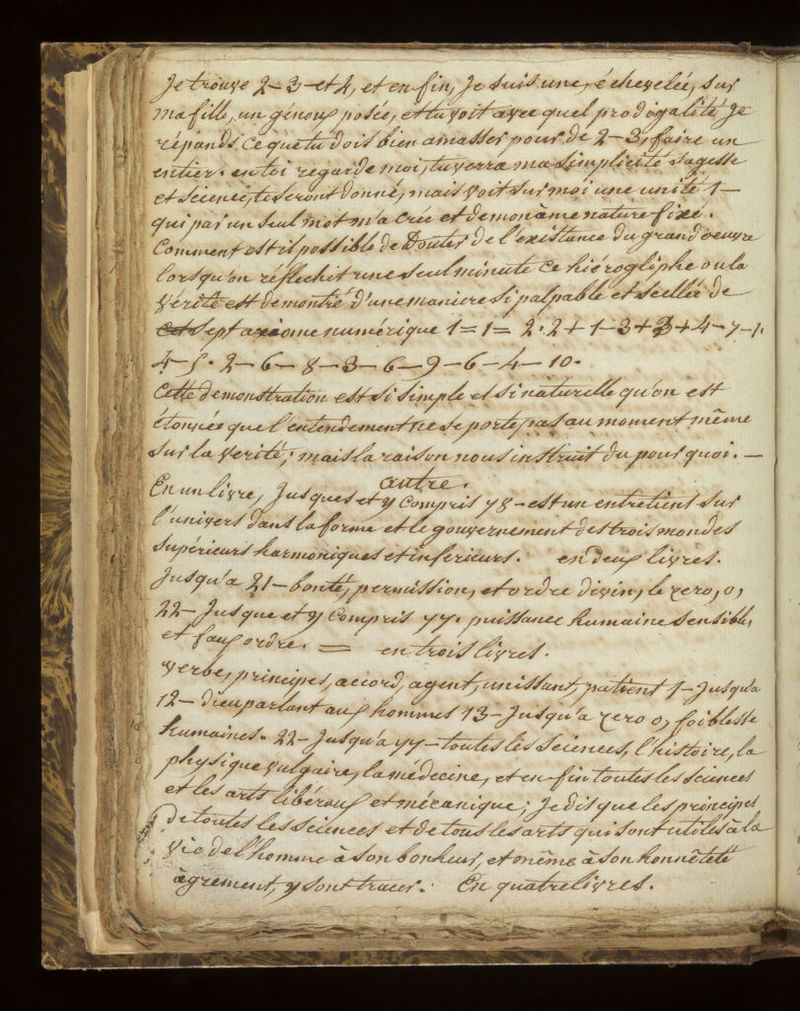 Je trouve 2 - 3 - et 4, et en fin, Je suis une, échevelée, sur
ma fille, un génoux posée, et tu voit avec quel prodigalité Je
répands. Ce que tu dois bien amasser pour de 2 - 3, faire un
entier. en toi regarde moi, tu verra ma simplicité sagesse
et Science, te seront donné, mais voit sur moi une unité 1 -
qui par un seul mot m'a Créé et de mon ame nature fixé.
Comment est il possible de Douter de l'existance du grand oeuvre
lorsqu'on réfléchit une seul minute Ce hiérogliphe ou la
Vérité est demontré d'une maniere si palpable et scellée de
sept axiome numérique 1 = 1 = 2. 2 + 1 - 3 + 3 + 4 - 7 - 1.
4 - 5. 2 - 6 - 8 - 3 - 6 - 9 - 6 - 4 - 10.
Cette demonstration est si simple et si naturelle qu'on est
étonnée que l'entendement ne se porte pas au moment même
sur la Verité; mais la raison nous instruit du pourquoi. -
autre.
En un livre, Jusques et y Compris 78 - est un entretient sur
l'univers dans la forme et le gouvernement des trois mondes
Supérieurs harmoniques et inférieurs. en deux livres.
Jusqu'a 21 - bonté, permission, et ordre divin, le zero, 0,
22 - Jusque et y Compris 77. puissance humaine sensible,
et faux ordre. = en trois livres.
Verbe, principes, accord, agent, unissant, patient 1 - Jusqu'a
12 - Dieu parlant aux hommes 13 - Jusqu'a zero 0, foiblesse
humaines. 22 - Jusqu'a 77 - toutes les Sciences, l'histoire, la
physique vulgaire, la médecine, et en fin toutes les Sciences
et les arts libéraux et mécanique; Je dis que les principes
de toutes les Sciences et de tous les arts qui sont utiles à la
Vie de l'homme à son bonheur, et même à son honnêteté
agrement, y sont tracer. En quatre livres.